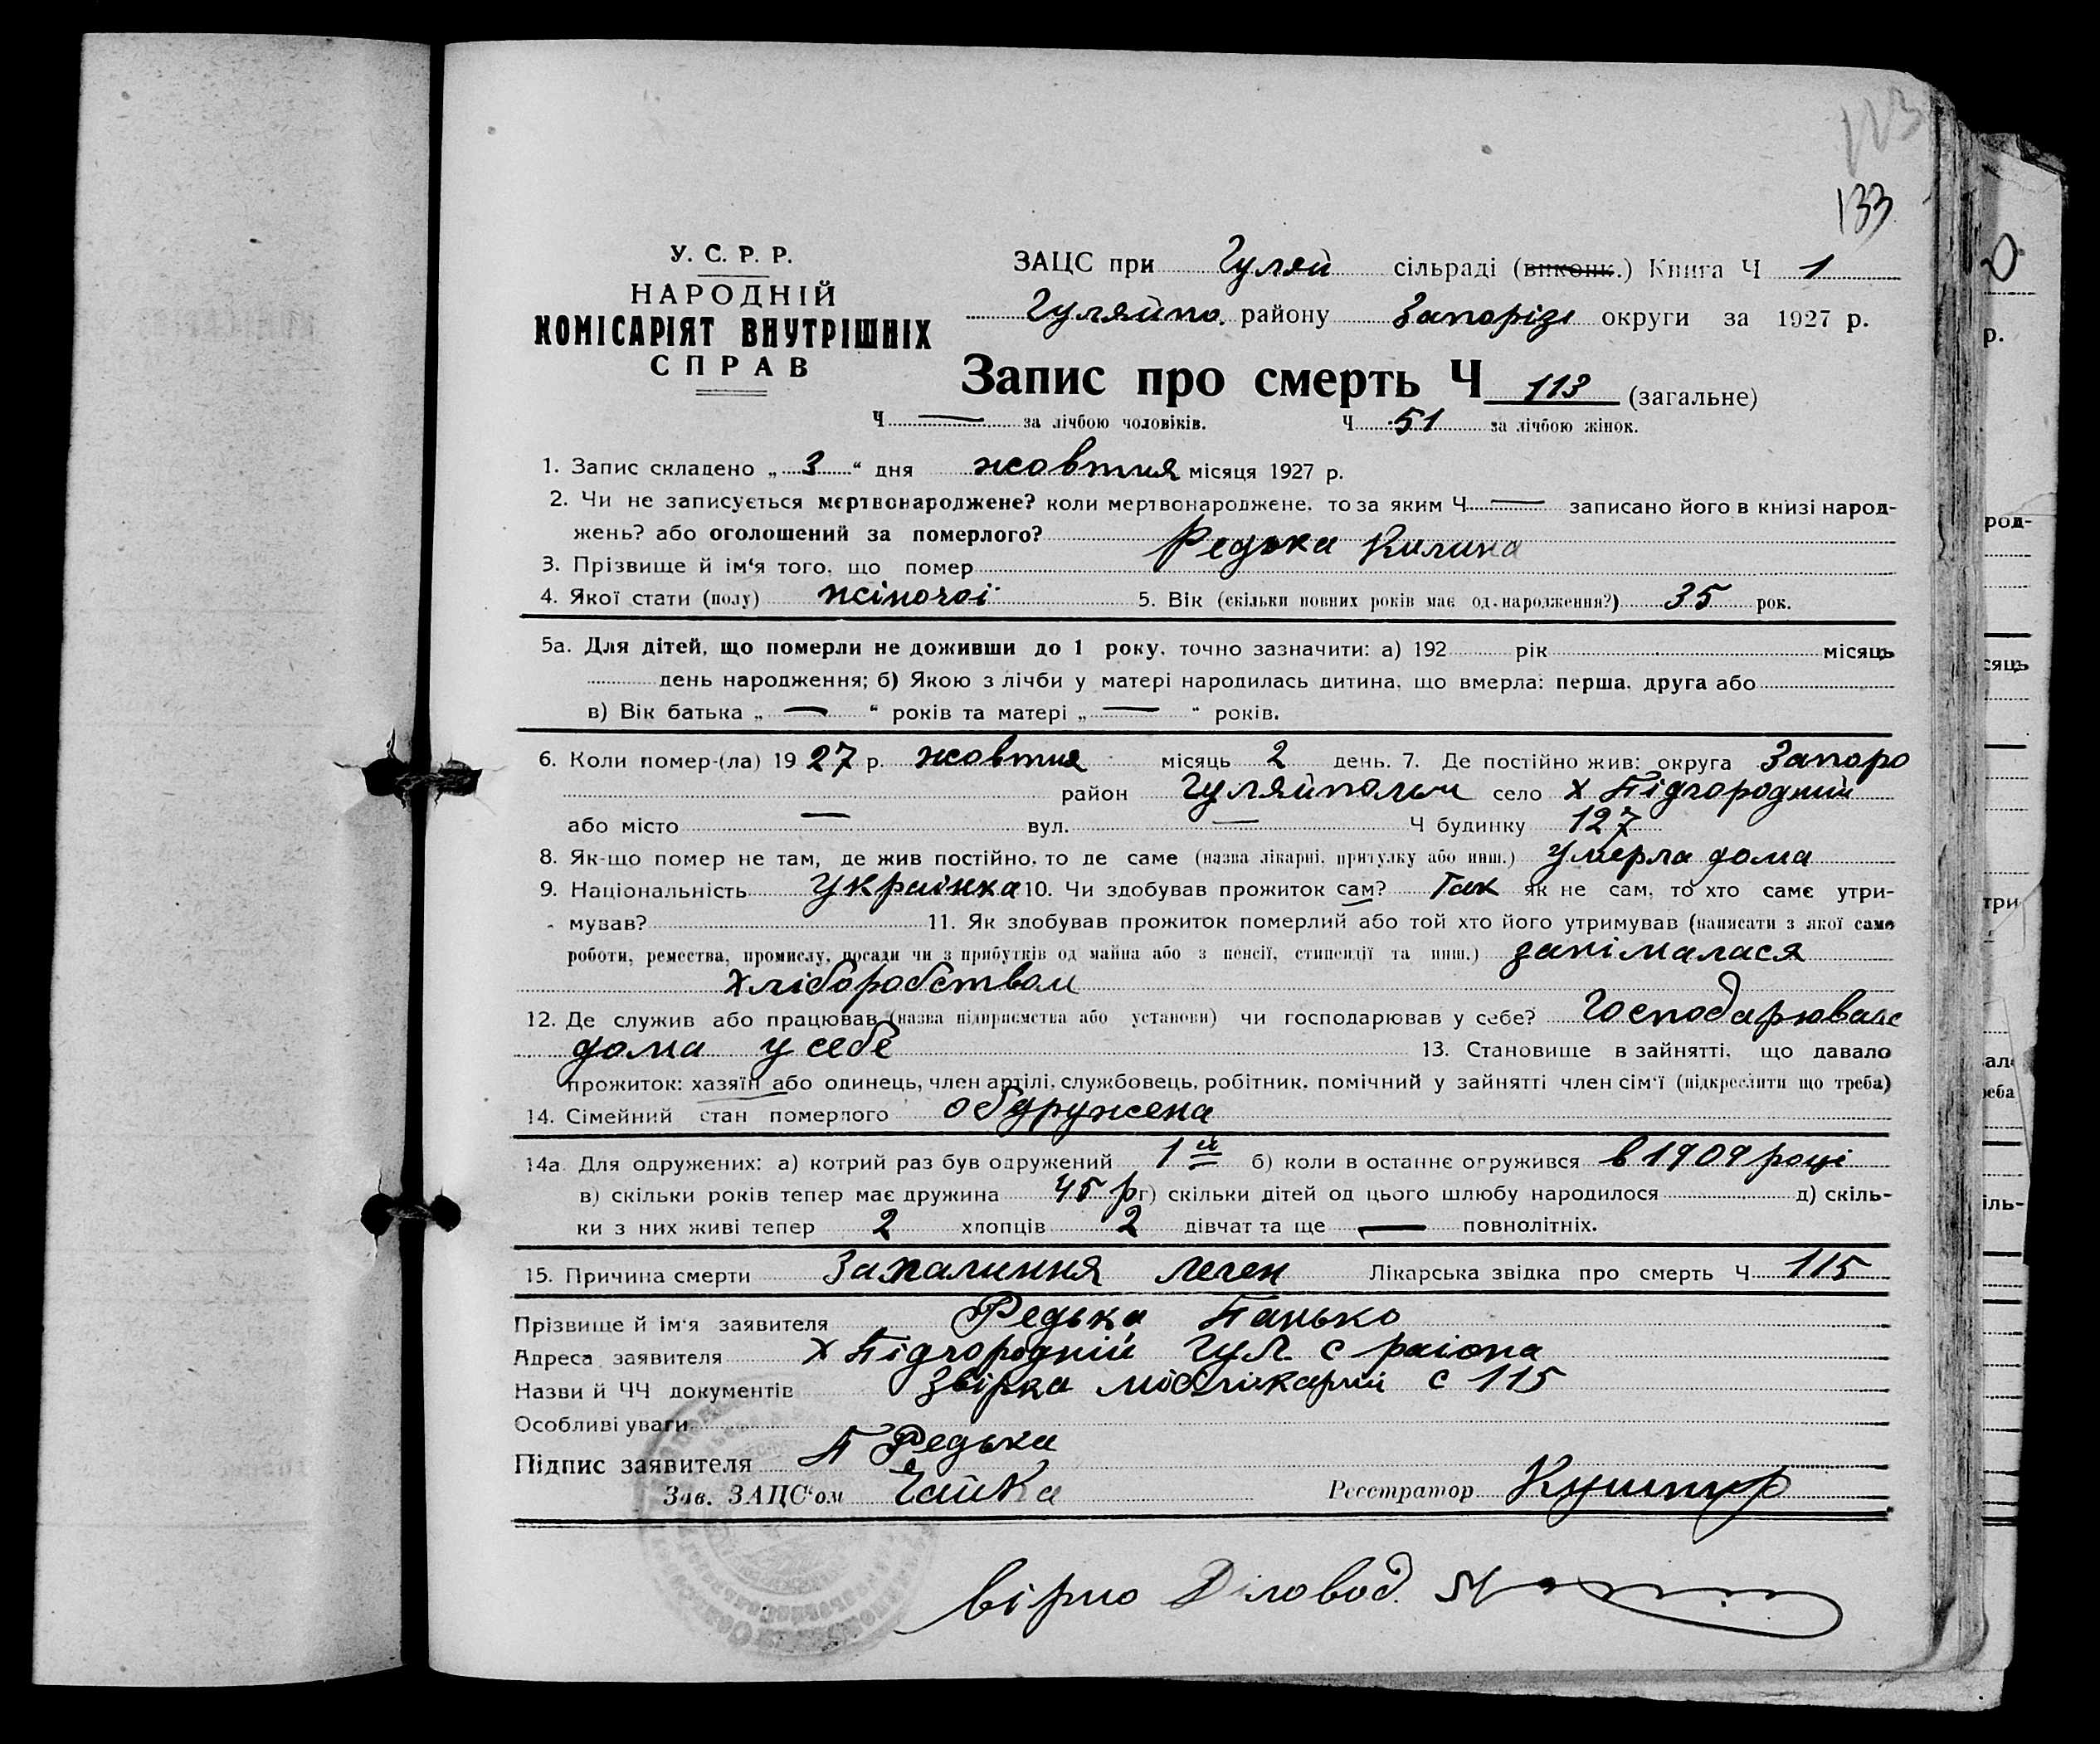 113
133
У. С. Р. Р.
НАРОДНІЙ
КОМІСАРІЯТ ВНУТРІШНІХ
СПРАВ
ЗАЦС при Гуляй сільраді (виконк.) Книга Ч 1
Гуляйпо. району Запорізь округи за 1927 р.
Запис про смерть Ч 113 (загальне)
Ч — за лічбою чоловіків. Ч 51 за лічбою жінок.
1. Запис складено „ 3 “ дня жовтня місяця 1927 р.
2. Чи не записується мертвонароджене? коли мертвонароджене, то за яким Ч — записано його в книзі народ-
жень? або оголошений за померлого?
3. Прізвище й ім‘я того, що помер Редька Килина
4. Якої стати (полу) жіночоі 5. Вік (скільки повних років має од народження?) 35 рок.
5а. Для дітей, що померли не доживши до 1 року, точно зазначити: а) 192 рік місяць
день народження; б) Якою з лічби у матері народилась дитина, що вмерла: перша, друга або
в) Вік батька „ — “ років та матері „ — “ років.
6. Коли помер-(ла) 19 27 р. жовтня місяць 2 день. 7. Де постійно жив: округа Запоро
район Гуляйпольск село х Підгородний
або місто — вул. — Ч будинку 127
8. Як-що помер не там, де жив постійно, то де саме (назва лікарні, притулку або инш.) умерла дома
9. Національність Украінка 10. Чи здобував прожиток сам? Так як не сам, то хто саме утри-
мував? 11. Як здобував прожиток померлий або той хто його утримував (написати з якої саме
роботи, ремества, промислу, посади чи з прибутків од майна або з пенсії, стипендії та инш.) занімалася
хліборобством
12. Де служив або працював (назва підприємства або установи) чи господарював у себе? Господарювала
дома у себе 13. Становище в зайнятті, що давало
прожиток: хазяїн або одинець, член артілі, службовець, робітник, помічний у зайнятті член сім‘ї (підкреслити що треба)
14. Сімейний стан померлого обдружена
14а. Для одружених: а) котрий раз був одружений 1 й б) коли в останнє одружився в 1909 році
в) скільки років тепер має дружина 45 р г) скільки дітей од цього шлюбу народилося д) скіль-
ки з них живі тепер 2 хлопців 2 дівчат та ще — повнолітніх.
15. Причина смерти Запалиння леген Лікарська звідка про смерть Ч 115
Прізвище й ім‘я заявителя Редька Панько
Адреса заявителя х Підгородний Гул. с раіона
Назви й ЧЧ документів с 115
Особливі уваги
Підпис заявителя П Редька
Зав. ЗАЦС‘ом Чайка Реєстратор Кушнір
вірно Діловод.